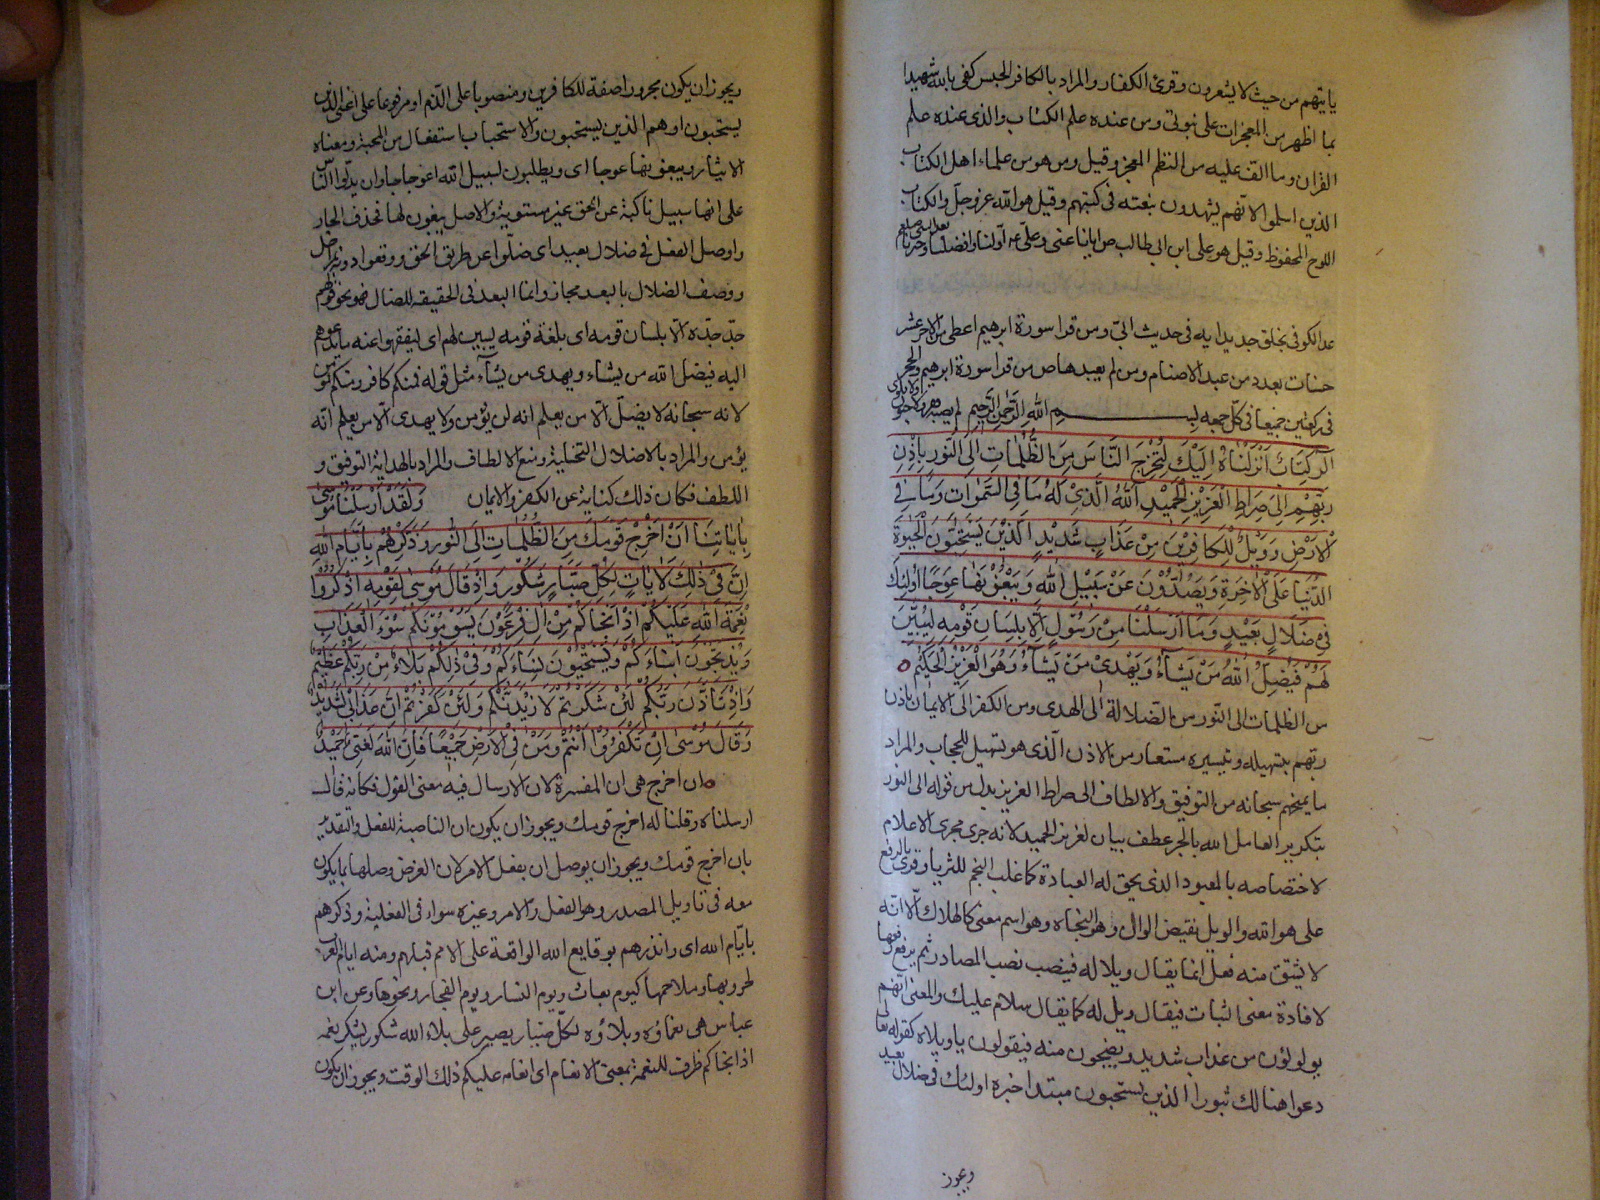 يأتيهم من حيث لا يشعرون وقرئ الكفار والمراد بالكافر الجنس كفى بالله شهيدا
بما اظهر من المعجزات على نبوتى ومن عنده علم الكتاب والذى عنده علم
القران وما الف عليه من النظم المعجز وقيل ومن هو من علماء اهل الكتاب
الذين اسلموا لانهم يشهدون بنعته فى كتبهم وقيل هو الله عز وجل والكتاب
اللوح المحفوظ وقيل هو على ابن ابي طالب ص ايانا عنى وعلى ع اولنا وافضلنا وخيرنا بعد النبى صلعم
عد الكوفى بخلق جديد ايه فى حديث ابى ومن قرا سورة ابرهيم اعطى من الاجر عشر
حسنات بعدد من عبد الاصنام ومن لم يعبدها ص من قرا سورة ابرهيم والحجر
فى ركعتين جميعا فى كل جمعه لم يصبه فقر ولا جنون ولا بلوى بسم الله الرحمن الرحيم
الر كِتَابٌ اَنْزَلْنَاهُ اِلَيْكَ لِتُخْرِجَ النَّاسَ مِنَ الظُّلُمَاتِ اِلَى النُّورِ بِاِذْنِ
رَبِّهِمْ اِلَى صِرَاطِ الْعَزِيزِ الْحَمِيدِ اَللهِ الَّذِىْ لَهُ مَا فِى السَّمَوَاتِ وَمَا فِى
الْاَرْضِ وَوَيْلٌ لِلْكَافِرِيْنَ مِنْ عَذَابٍ شَدِيْدٍ اَلَّذِيْنَ يَسْتَحِبُّونَ الْحَيٰوةَ
الدُّنْيَا عَلَى الْاٰخِرَةِ وَيَصُدُّوْنَ عَنْ سَبِيْلِ اللهِ وَيَبْغُوْنَهَا عِوَجًا اُولٰئِكَ
فِى ضَلَالٍ بَعِيْدٍ وَمَا اَرْسَلْنَا مِنْ رَسُوْلٍ اِلَّا بِلِسَانِ قَوْمِهِ لِيُبَيِّنَ
لَهُمْ فَيُضِلُّ اللهُ مَنْ يَشَآءُ وَيَهْدِىْ مَنْ يَشَآءُ وَهُوَ الْعَزِيْزُ الْحَكِيْمُ
من الظلمات الى النور من الضلالة الى الهدى ومن الكفر الى الايمان باذن
ربهم بتسهيله وتيسيره مستعار من الاذن الذى هو تسهيل للحجاب والمراد
ما يمنحهم سبحانه من التوفيق والالطاف الى صراط العزيز بدل من قوله الى النور
بتكرير العامل الله بالجر عطف بيان لعزيز الحميد لانه جرى مجرى الاعلام
لاختصاصه بالمعبود الذى يحق له العبادة كما غلب النجم للثريا وقرئ بالرفع
على هو الله والويل نقيض الوال وهو النجاه وهو اسم معنى كالهلاك الا انه
لا يشتق منه فعل انما يقال ويلا له فينصب نصب المصادر ثم يرفع رفعها
لافادة معنى الثبات فيقال ويل له كما يقال سلام عليك والمعنى انهم
يولولون من عذاب شديد ويضجون منه فيقولون ياويلاه كقوله تعالى
دعوا هنالك ثبورا الذين يستحبون مبتدا خبره اولئك فى ضلال بعيد
ويجوز
ويجوز ان يكون مجرورا صفة للكافرين ومنصوبا على الذم او مرفوعا على اعنى الذين
يستحبون او هم الذين يستحبون والاستحباب استفعال من المحبة ومعناه
الايثار ويبغونها عوجا اى ويطلبون لسبيل الله اعوجاجا وان يدلوا الناس
على انها سبيل ناكبة عن الحق غير مستوية والاصل يبغون لها فحذف الجار
واوصل الفعل فى ضلال بعيد اى ضلوا عن طريق الحق ووقعوا دونه مراحل
ووصف الضلال بالبعد مجاز وانما البعد فى الحقيقه للضال فهو نحو قولهم
جد جده الا بلسان قومه اى بلغة قومه ليبين لهم اى ليفقهوا عنه ما يدعوهم
اليه فيضل الله من يشاء ويهدى من يشآء مثل قوله فمنكم كافر ومنكم مؤمن
لانه سبحانه لا يضل الا من يعلم انه لن يؤمن ولا يهدى الا من يعلم انه
يؤمن والمراد بالاضلال التخلية ومنع الالطاف والمراد بالهداية التوفيق و
اللطف فكان ذلك كناية عن الكفر والايمان وَلَقَدْ اَرْسَلْنَا مُوسٰى
بِاٰيَاتِنَا اَنْ اَخْرِجْ قَوْمَكَ مِنَ الظُّلُمَاتِ اِلَى النُّوْرِ وَذَكِّرْهُمْ بِاَيَّامِ اللهِ
اِنَّ فِىْ ذٰلِكَ لَاٰيَاتٍ لِكُلِّ صَبَّارٍ شَكُوْرٍ وَاِذْ قَالَ مُوْسٰى لِقَوْمِهِ اذْكُرُوا
نِعْمَةَ اللهِ عَلَيْكُمْ اِذْ اَنْجَاكُمْ مِنْ اٰلِ فِرْعَوْنَ يَسُوْمُوْنَكُمْ سُوْءَ الْعَذَابِ
وَيُذَبِّحُوْنَ اَبْنَاءَكُمْ وَيَسْتَحْيُوْنَ نِسَاءَكُمْ وَفِىْ ذٰلِكُمْ بَلَاءٌ مِنْ رَبِّكُمْ عَظِيْمٌ
وَاِذْ تَاَذَّنَ رَبُّكُمْ لَئِنْ شَكَرْتُمْ لَاَزِيْدَنَّكُمْ وَلَئِنْ كَفَرْتُمْ اِنَّ عَذَابِى لَشَدِيْدٌ
وَقَالَ مُوْسٰى اِنْ تَكْفُرُوْا اَنْتُمْ وَمَنْ فِى الْاَرْضِ جَمِيْعًا فَاِنَّ اللهَ لَغَنِىٌّ حَمِيْدٌ
ان اخرج هى ان المفسرة لان الارسال فيه معنى القول فكانه قال
ارسلناه وقلنا له اخرج قومك ويجوز ان يكون ان الناصبة للفعل والتقدير
بان اخرج قومك ويجوز ان يوصل ان بفعل الامر لان الغرض وصلها بما يكون
معه فى تاويل المصدر وهو الفعل والامر وغيره سواء فى الفعلية وذكرهم
بايام الله اى وانذرهم بوقايع الله الواقعة على الامم قبلهم ومنه ايام العرب
لحروبها وملاحمها كيوم بعاث ويوم النسار ويوم الفجار ونحوها وعن ابن
عباس هى نعماؤه وبلاؤه لكل صبار يصبر على بلاء الله شكور يشكر نعمه
اذ انجاكم ظرف للنعمة بمعنى الانعام اى انعامه عليكم ذلك الوقت ويجوز ان يكون